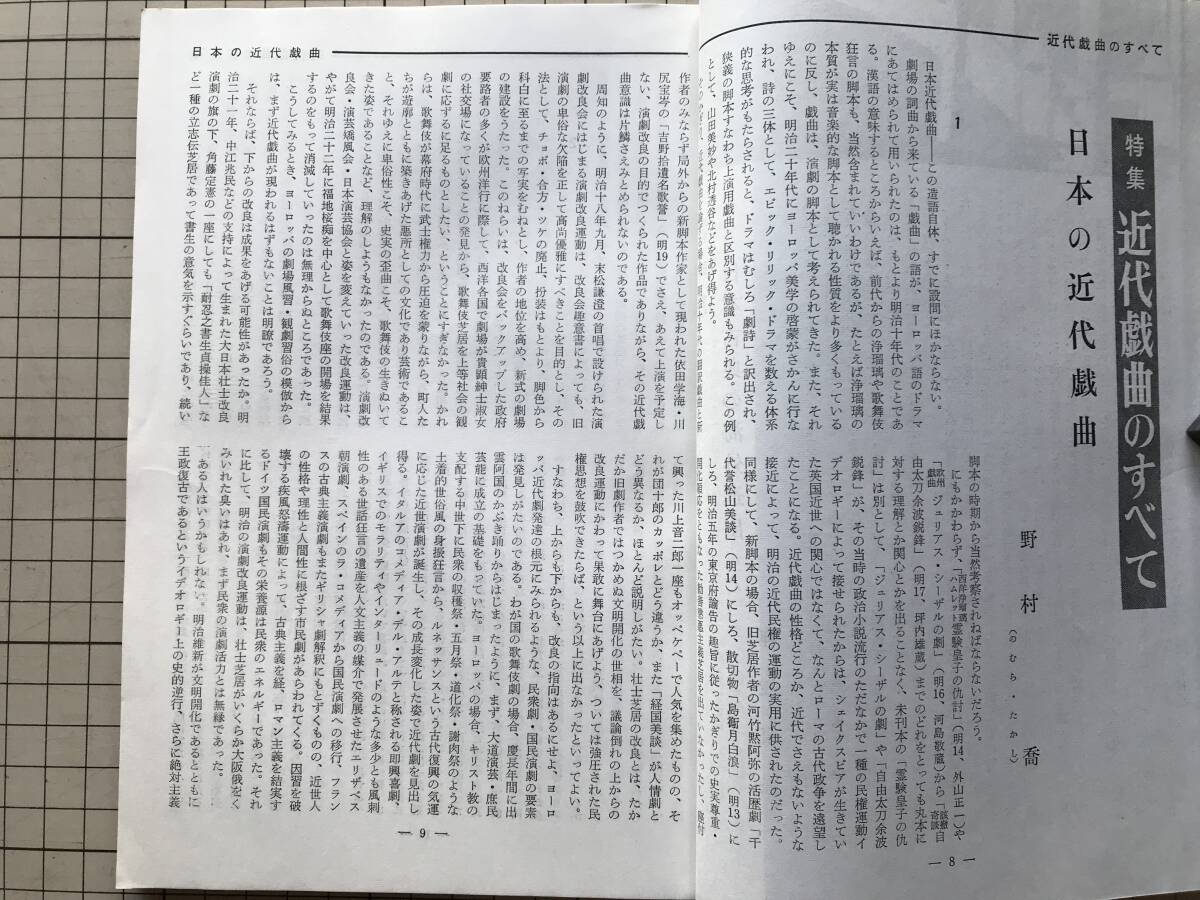 近代戯曲のすべて
特集 近代戯曲のすべて
日本の近代戯曲
野村 喬
(のむら・たかし)
1
日本近代戯曲――この造語自体、すでに設問にほかならない。
劇場の詞曲から来ている「戯曲」の語が、ヨーロッパ語のドラマ
にあてはめられて用いられたのは、もとより明治十年代のことであ
る。漢語の意味するところからいえば、前代からの浄瑠璃や歌舞伎
狂言の脚本も、当然含まれていいわけであるが、たとえば浄瑠璃の
本質が実は音楽的な脚本として聴かれる性質をより多くもっている
のに反し、戯曲は、演劇の脚本として考えられてきた。また、それ
ゆえにこそ、明治二十年代にヨーロッパ美学の啓蒙がさかんに行な
われ、詩の三体として、エピック・リリック・ドラマを数える体系
的な思考がもたらされると、ドラマはむしろ「劇詩」と訳出され、
狭義の脚本すなわち上演用戯曲と区別する意識もみられる。この例
として、山田美妙や北村透谷などをあげ得よう。
脚本の時期から当然考察されねばならないだろう。
にもかかわらず、「西洋浄瑠璃ハムレット霊験皇子の仇討」(明14、外山正一)や
「欧州戯曲ジュリアス・シーザルの劇」(明16、河島敬蔵)から「該撒奇談自
由太刀余波鋭鋒」(明17、坪内雄蔵)までのどれをとっても丸本に
対する理解とか関心とかを出ることなく、未刊本の「霊験皇子の仇
討」は別として、「ジュリアス・シーザルの劇」や「自由太刀余波
鋭鋒」が、その当時の政治小説流行のただなかで一種の民権運動イ
デオロギーによって接せられたからは、シェイクスピアが生きてい
た英国近世への関心ではなくて、なんとローマの古代政争を遠望し
たことになる。近代戯曲の性格どころか、近代でさえもないような
接近によって、明治の近代民権の運動の実用に供されたのだった。
同様にして、新脚本の場合、旧芝居作者の河竹黙阿弥の活歴劇「千
代誉松山美談」(明14)にしろ、散切物「島衛月白浪」(明13)に
しろ、明治五年の東京府諭告の趣旨に従ったかぎりでの史実尊重・
― 8 ―
日本の近代戯曲
作者のみならず局外からの新脚本作家として現われた依田学海・川
尻宝岑の「吉野拾遺名歌誉」(明19)でさえ、あえて上演を予定し
ない、演劇改良の目的でつくられた作品でありながら、その近代戯
曲意識は片鱗さえみとめられないのである。
周知のように、明治十八年九月、末松謙澄の首唱で設けられた演
劇改良会にはじまる演劇改良運動は、改良会趣意書によっても、旧
演劇の卑俗な欠陥を正して高尚優雅にすべきことを目的とし、その
法として、チョボ・合方・ツケの廃止、扮装はもとより、脚色から
科白に至るまでの写実をむねとし、作者の地位を高め、新式の劇場
の建設をうたった。このねらいは、改良会をバックアップした政府
要路者の多くが欧州洋行に際して、西洋各国で劇場が貴顕紳士淑女
の社交場になっていることの発見から、歌舞伎芝居を上等社会の観
劇に応ずるに足るものとしたい、ということにすぎなかった。かれ
らは、歌舞伎が幕府時代に武士権力から圧迫を蒙りながら、町人た
ちが遊廓とともに築きあげた悪所としての文化であり芸術であるこ
と、それゆえに卑俗性こそ、史実の歪曲こそ、歌舞伎の生きぬいて
きた姿であることなど、理解のしようもなかったのである。演劇改
良会・演芸矯風会・日本演芸協会と姿を変えていった改良運動は、
やがて明治二十二年に福地桜痴を中心として歌舞伎座の開場を結果
するのをもって消滅していったのは無理からぬところであった。
こうしてみるとき、ヨーロッパの劇場風習・観劇習俗の模倣から
は、まず近代戯曲が現われるはずもないことは明瞭であろう。
それならば、下からの改良は成果をあげる可能性があったか。明
治二十一年、中江兆民などの支持によって生まれた大日本壮士改良
演劇の旗の下、角藤定憲の一座にしても「耐忍之書生貞操佳人」な
ど一種の立志伝芝居であって書生の意気を示すぐらいであり、続い
て興った川上音二郎一座もオッペケペーで人気を集めたものの、そ
れが団十郎のカッポレとどう違うか、また「経国美談」が人情劇と
どう異なるか、ほとんど説明しがたい。壮士芝居の改良とは、たか
だか旧劇作者ではつかめぬ文明開化の世相を、議論倒れの上からの
改良運動にかわって果敢に舞台にあげよう、ついては強圧された民
権思想を鼓吹できたらば、という以上に出なかったといってよい。
すなわち、上からも下からも、改良の指向はあるにせよ、ヨーロ
ッパ近代劇発達の根元にみられるような、民衆劇・国民演劇の要素
は発見しがたいのである。わが国の歌舞伎劇の場合、慶長年間に出
雲阿国のかぶき踊りからはじまったように、まず、大道演芸・庶民
芸能に成立の基礎をもっていた。ヨーロッパの場合、キリスト教の
支配する中世下に民衆の収穫祭・五月祭・道化祭・謝肉祭のような
土着的世俗風の身振狂言から、ルネッサンスという古代復興の気運
に応じた近世演劇が誕生し、その成長変化した姿で近代劇を見出し
得る。イタルアのコメディア・デル・アルテと称される即興喜劇、
イギリスでのモラリティやインターリュードのような多少とも風刺
性のある世話狂言の遺産を人文主義の媒介で発展させたエリザベス
朝演劇、スペインのラ・コメディアから国民演劇への移行、フラン
スの古典主義演劇もまたギリシャ劇解釈にもとずくものの、近世人
の性格や理性と人間性に根ざす市民劇があらわれてくる。因習を破
壊する疾風怒濤運動によって、古典主義を経、ロマン主義を結実す
るドイツ国民演劇もその栄養源は民衆のエネルギーであった。それ
に比して、明治の演劇改良には、壮士芝居がいくらか大阪俄をく
みいれた臭いはあれ、まず民衆の演劇活力とは無縁であった。
ある人はいうかもしれない。明治維新が文明開化であるとともに
王政復古であるというイデオロギー上の史的逆行、さらに絶対主義
― 9 ―